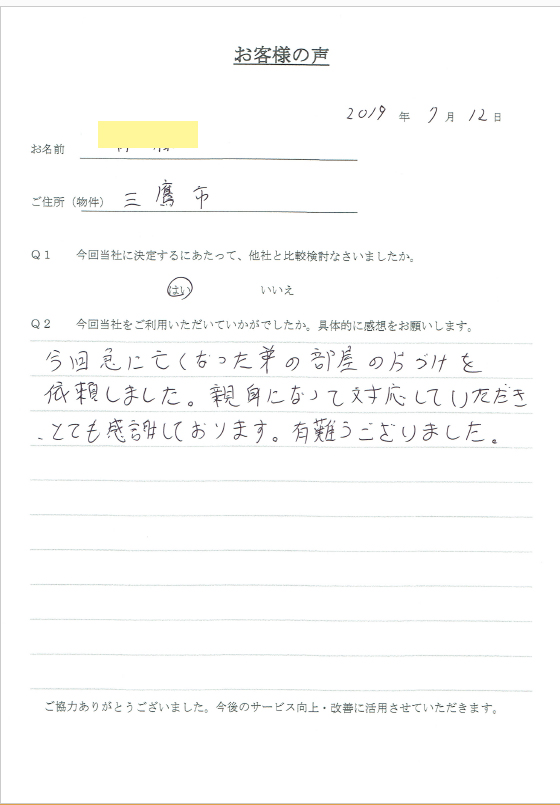 お客様の声
2019 年 7月 12日
お名前
ご住所（物件） 三鷹市
Q1 今回当社に決定するにあたって、他社と比較検討なさいましたか。
はい いいえ
Q2 今回当社をご利用いただいていかがでしたか。具体的に感想をお願いします。
今回急に亡くなった弟の部屋の片づけを
依頼しました。親身になって対応していただき
、とても感謝しております。有難うございました。
ご協力ありがとうございました。今後のサービス向上・改善に活用させていただきます。